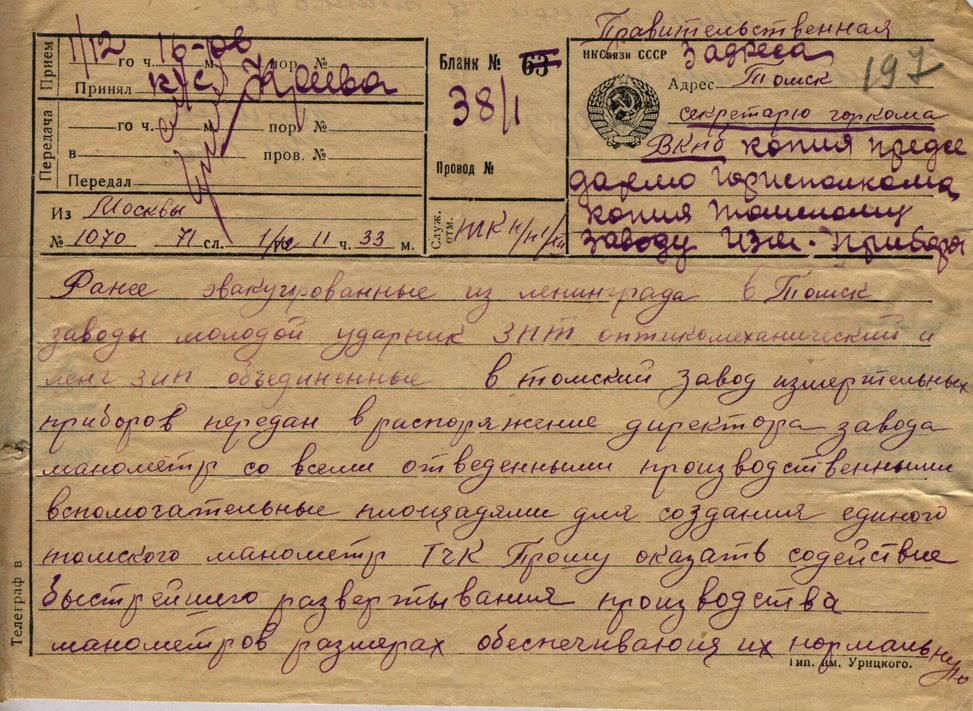 Правительственная
3 адреса
197
Прием
1/12 го ч. 16-08 м. пор. №
Принял
Передача
го ч. м. пор. №
в пров. №
Передал
Из Москвы
№ 1070 71 сл. 1/XII 11 ч. 33 м.
Бланк № 63
38/1
Провод №
Служ. отм.
НКСвязи СССР
Адрес Томск
секретарю горкома
ВКПб копия предсе
дателю горисполкома
копия томскому
заводу изм. прибора
Ранее эвакуированные из ленинграда в Томск
заводы молодой ударник ЗПТ оптикомеханический и
ленг ЗИП объединенные в томский завод измерительных
приборов передан в распоряжение директора завода
манометр со всеми отведенными производственными
вспомогательные площадями для создания единого
томского манометр ТЧК Прошу оказать содействие
быстрейшего развертывания производства
манометров размерах обеспечивающих нормальную
Телеграф в
Тип. им. Урицкого.